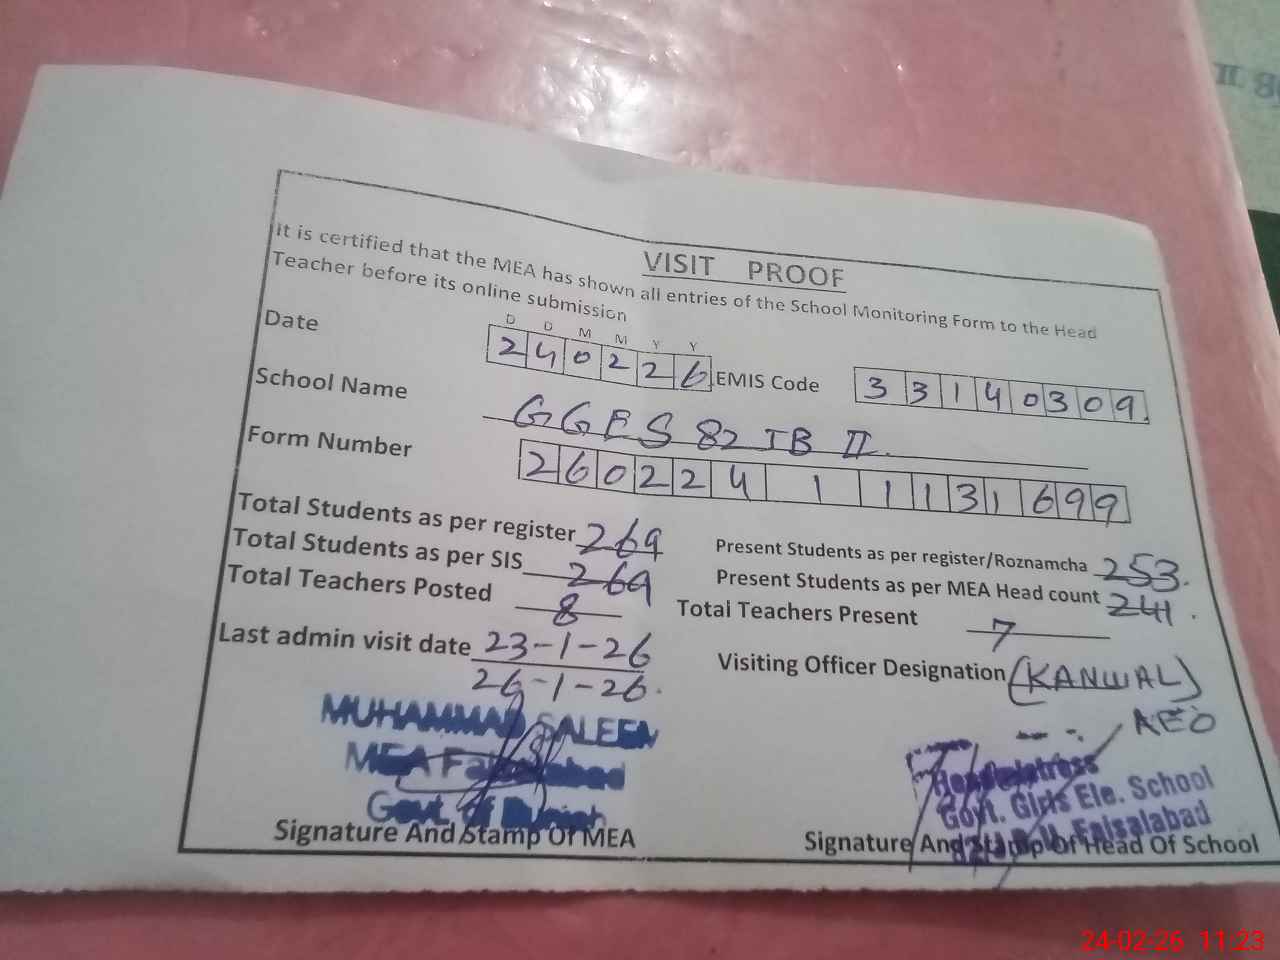 VISIT PROOF
It is certified that the MEA has shown all entries of the School Monitoring Form to the Head
Teacher before its online submission
D D M M Y Y
Date 240226 EMIS Code 33140309
School Name GGES 82 JB II
Form Number 26022411131699
Total Students as per register 269 Present Students as per register/Roznamcha 253.
Total Students as per SIS 269 Present Students as per MEA Head count 241.
Total Teachers Posted 8 Total Teachers Present 7
Last admin visit date 23-1-26 Visiting Officer Designation (KANWAL)
26-1-26. AEO
MUHAMMAD SALEEM
MEA Faisalabad
Govt. of Punjab
Signature And Stamp Of MEA
Headmistress
Govt. Girls Ele. School
Faisalabad
Signature And Stamp Of Head Of School
II
24-02-26 11:23